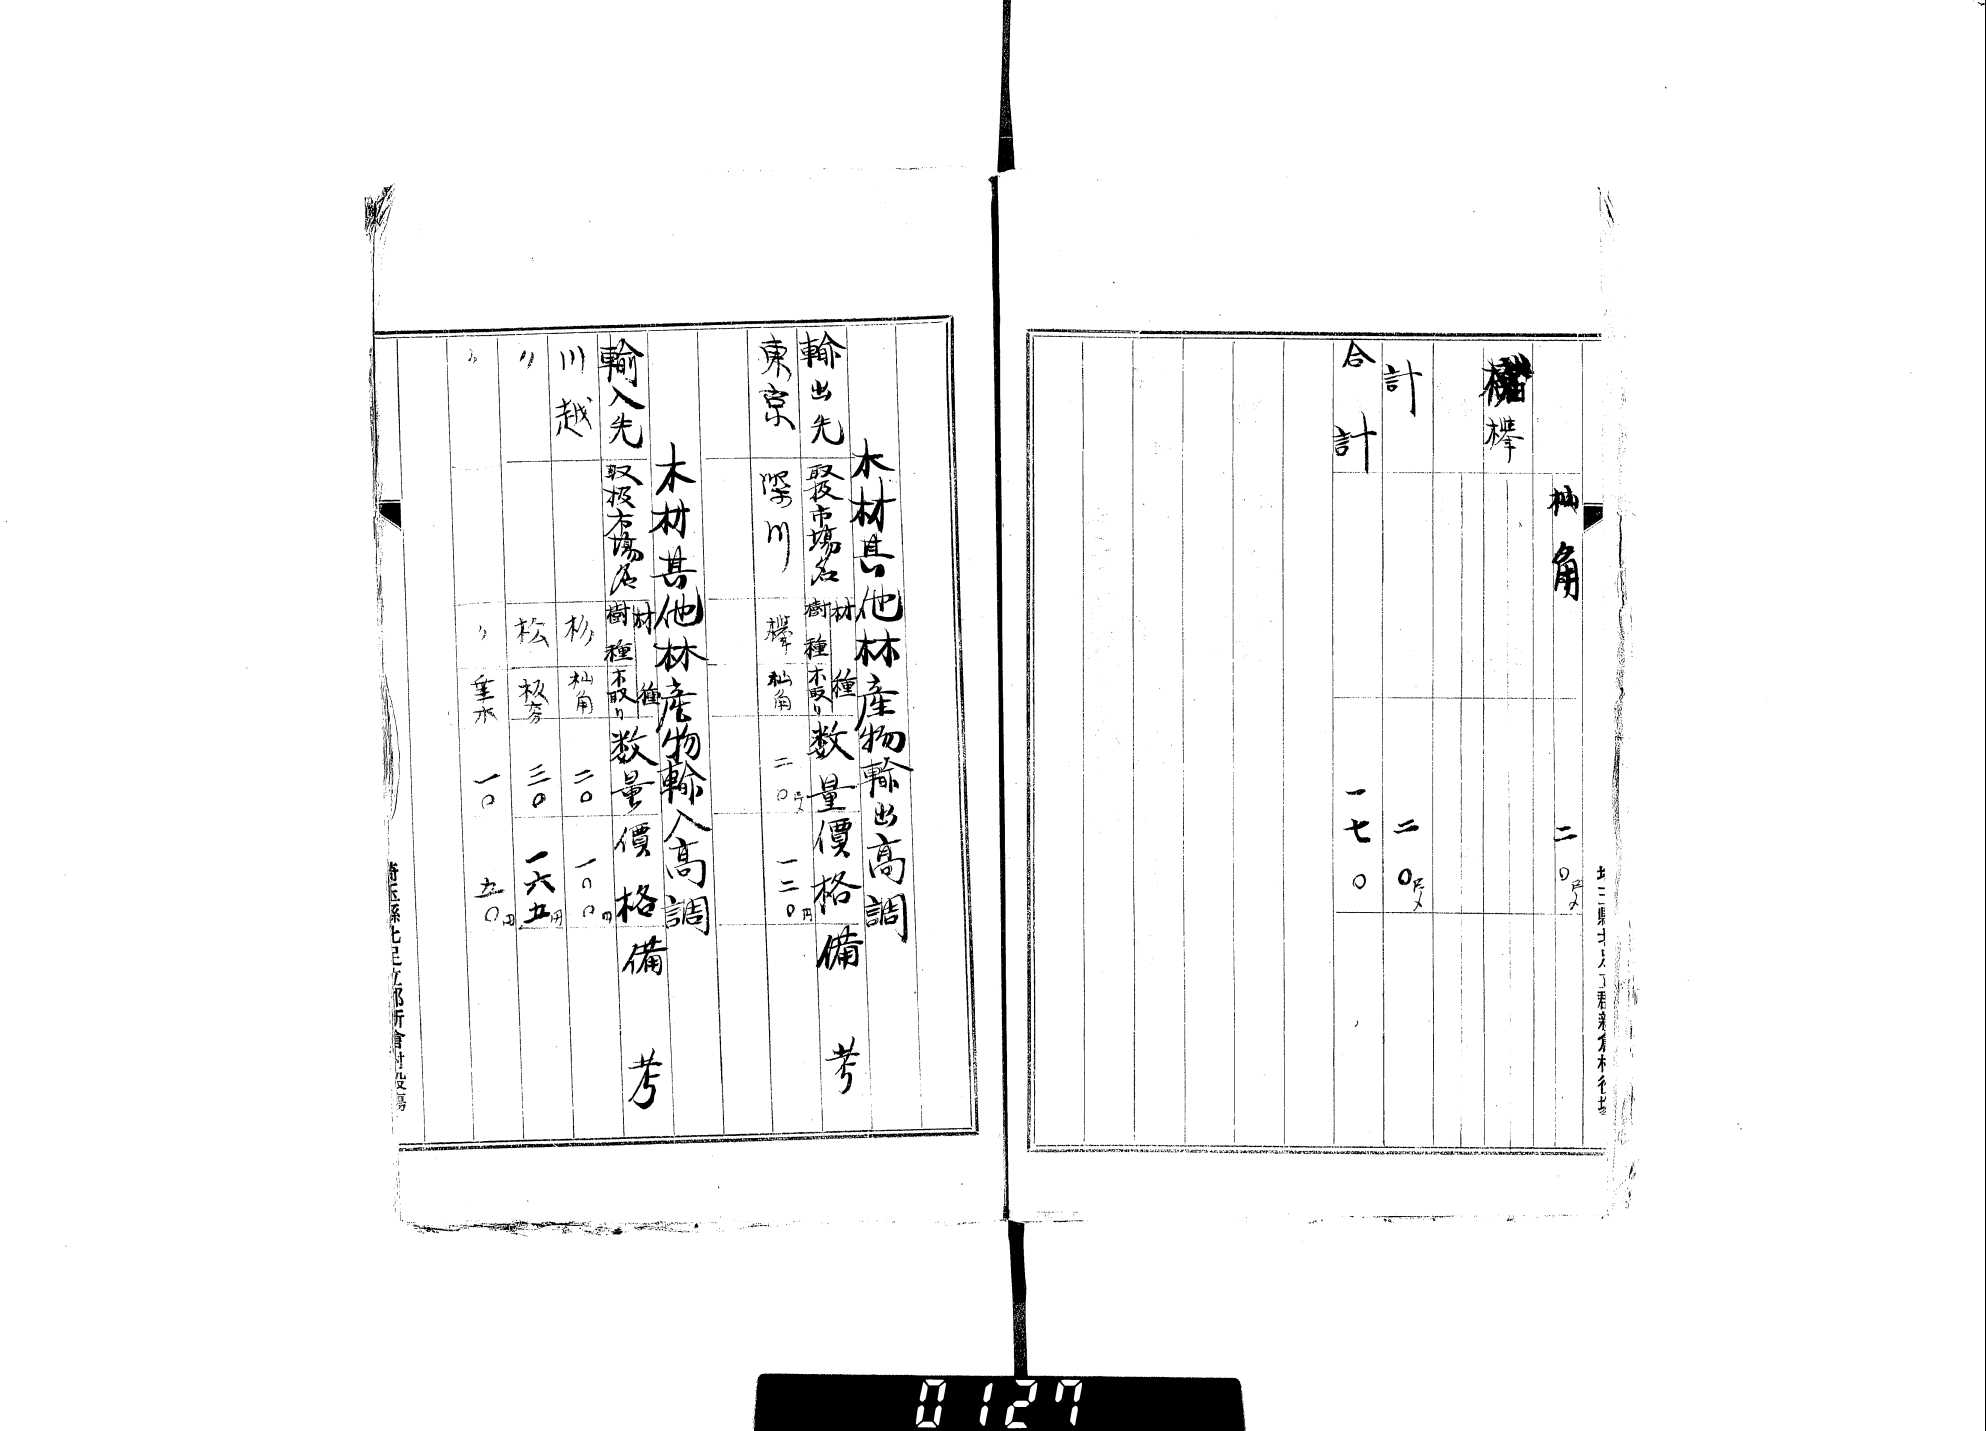 杣角 二〇尺〆
欅
計 二〇尺〆
合計 一七〇
埼玉縣北足立郡新倉村役場
木材其他林産物輸出高調
輸出先 取扱市場名 材種 樹種 木取リ 数量 價格 備考
東京 深川 欅 杣角 二〇尺〆 一二〇円
木材其他林産物輸入高調
輸入先 取扱市場名 材種 樹種 木取リ 数量 價格 備考
川越 杉 杣角 二〇 一〇〇円
〃 松 板 三〇 一六五円
〃 〃 一〇 五〇円
埼玉縣北足立郡新倉村役場
0127